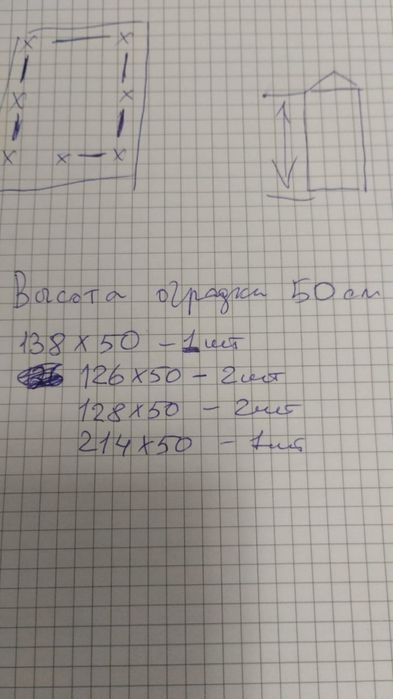 Высота оградки 50 см
138 х 50 - 1 шт
126 х 50 - 2 шт
128 х 50 - 2 шт
214 х 50 - 1 шт